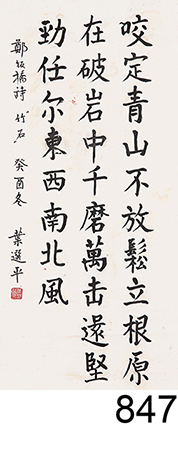 咬定青山不放鬆立根原
在破岩中千磨萬击還堅
勁任尔東西南北風
鄭板橋詩 竹石 癸酉冬 葉選平
847